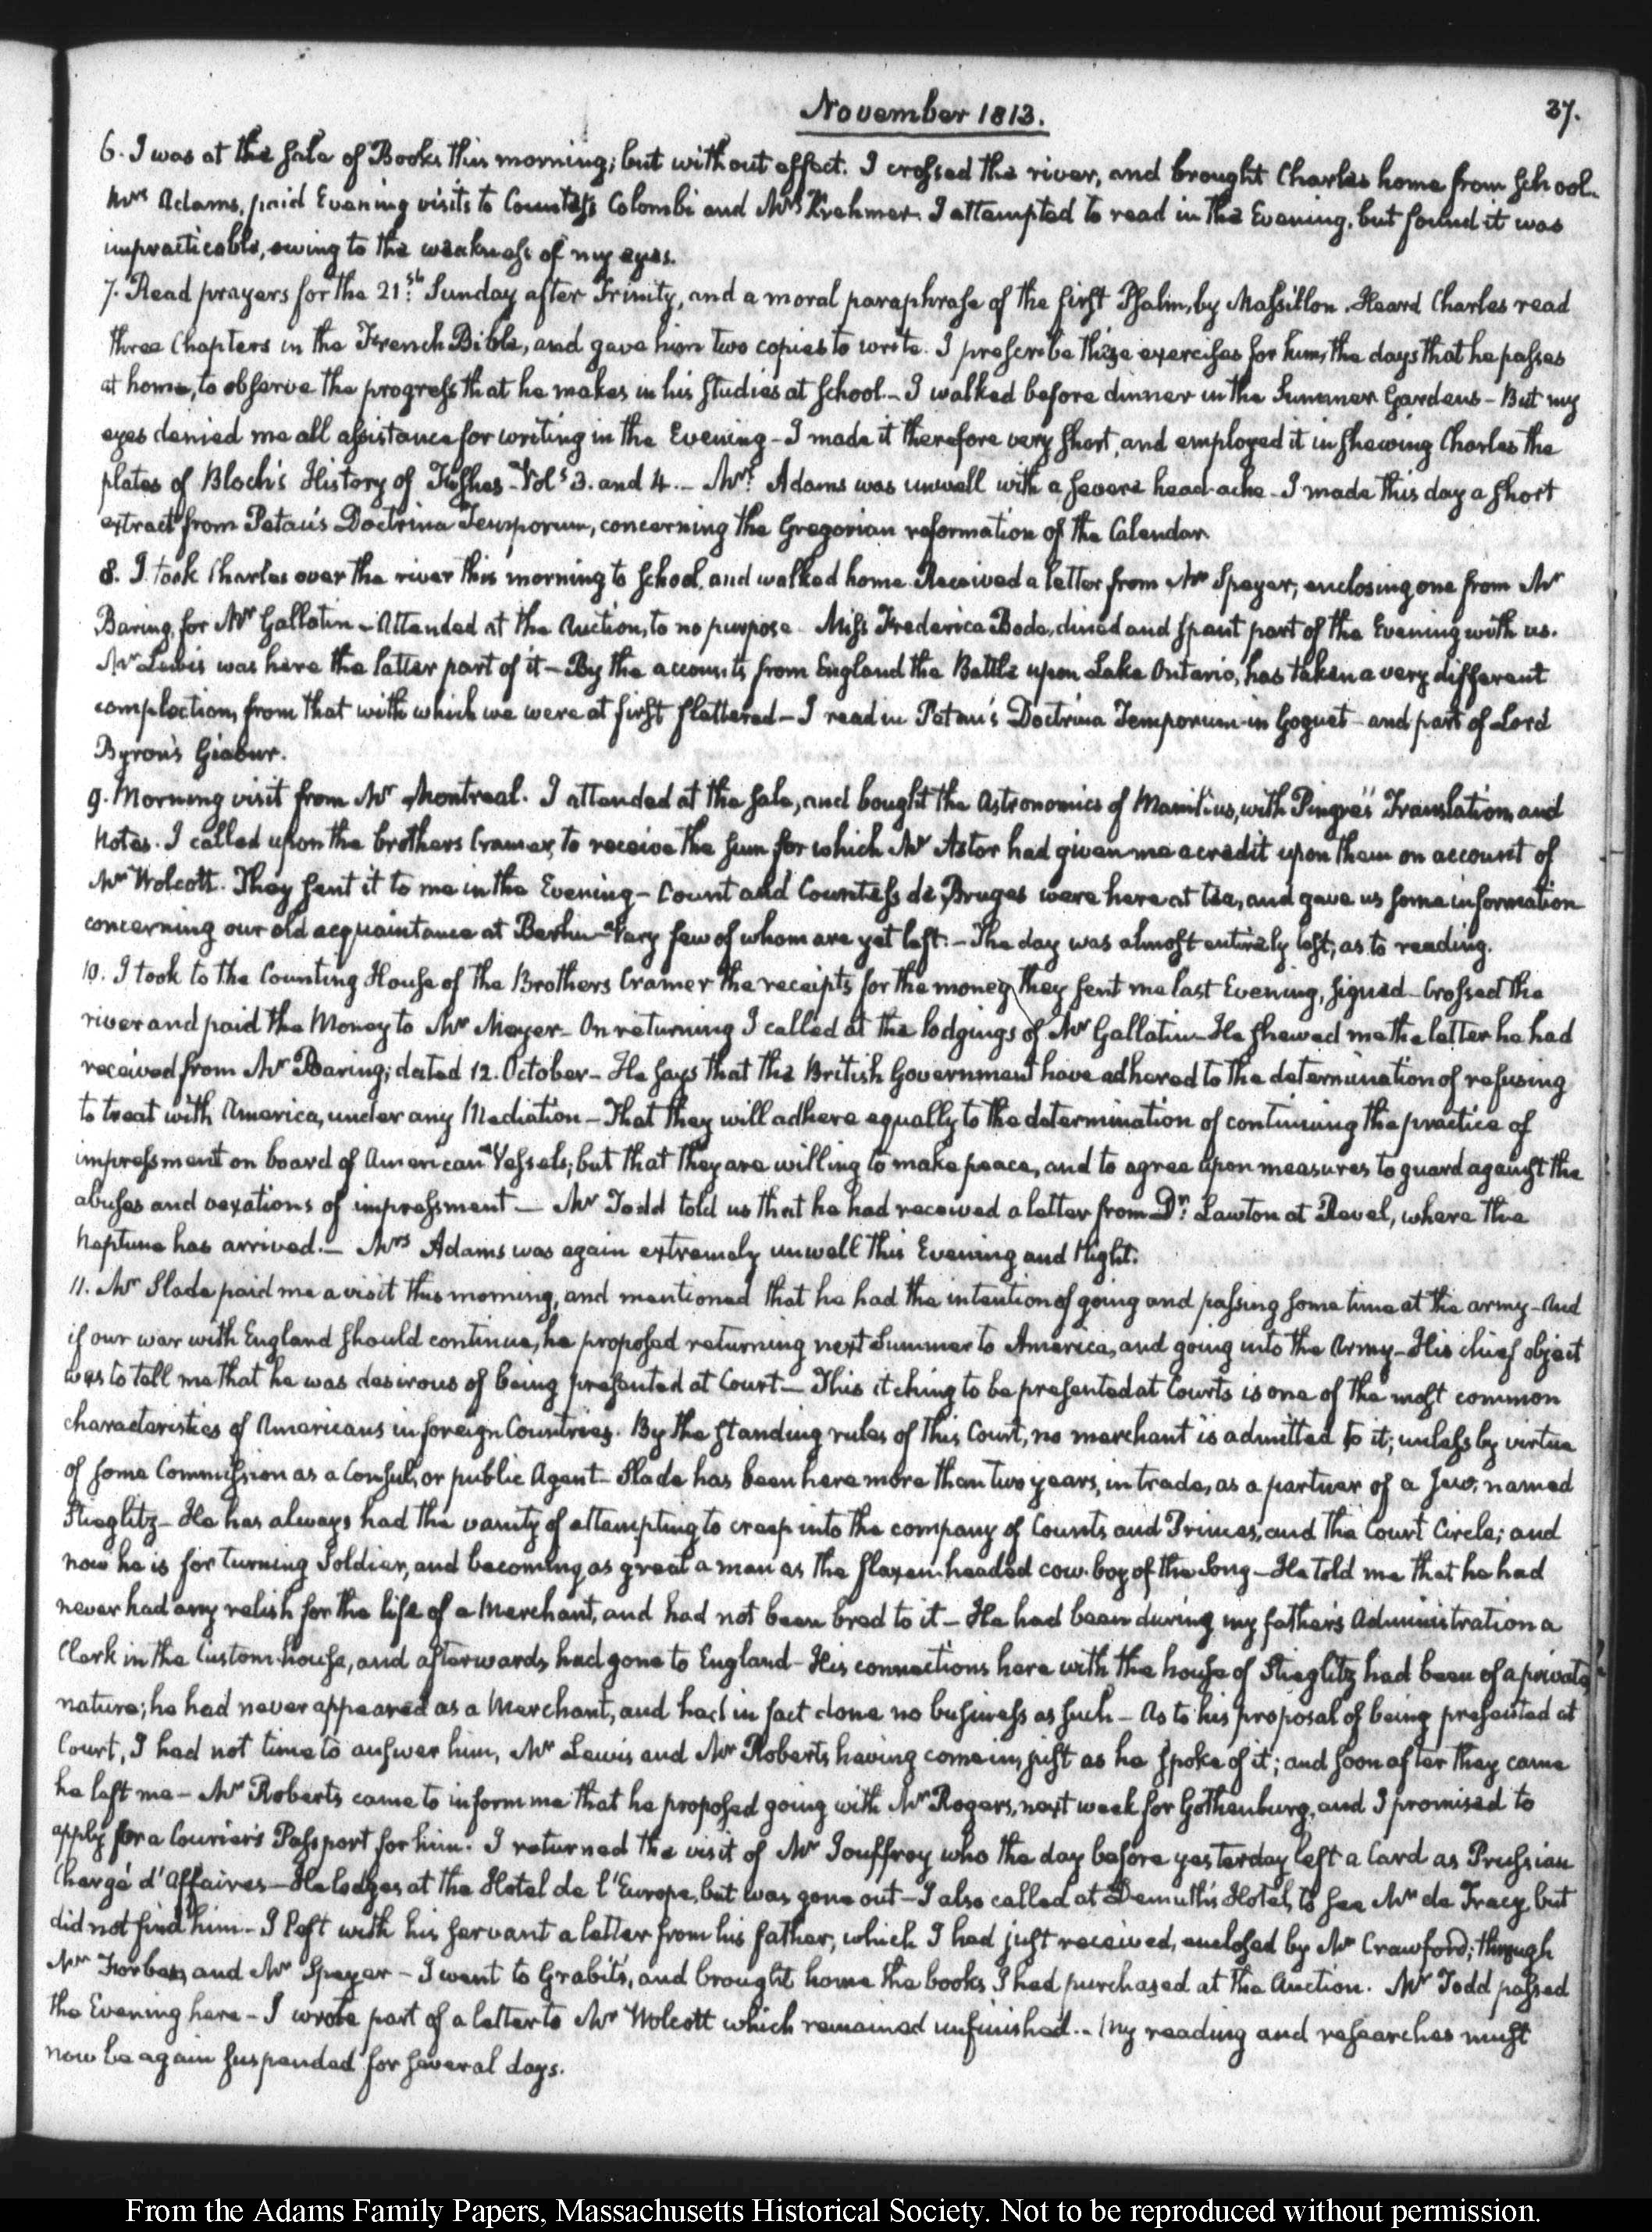 November 1813.
37.
6. I was at the sale of Books this morning; but without effect. I crossed the river, and brought Charles home from School.
Mrs Adams, paid Evening visits to Countess Colombi and Mrs Krehmer. I attempted to read in the Evening, but found it was
impracticable, owing to the weakness of my eyes.
7. Read prayers for the 21st Sunday after Trinity, and a moral paraphrase of the first Psalm, by Massillon. Heard Charles read
three Chapters in the French Bible, and gave him two copies to write. I prescribe these exercises for him, the days that he passes
at home, to observe the progress that he makes in his studies at School. - I walked before dinner in the Summer Gardens - But my
eyes denied me all assistance for writing in the Evening - I made it therefore very short, and employed it in shewing Charles the
plates of Bloch's History of Fishes - Vols 3. and 4. - Mrs Adams was unwell with a severe head-ache - I made this day a short
extract from Petau's Doctrina Temporum, concerning the Gregorian reformation of the Calendar.
8. I took Charles over the river this morning to School, and walked home. Received a letter from Mr Speyer, enclosing one from Mr
Baring, for Mr Gallatin - Attended at the Auction, to no purpose. Miss Frederica Bode, dined and spent part of the Evening with us.
Mr Lewis was here the latter part of it - By the accounts from England the Battle upon Lake Ontario, has taken a very different
complection, from that with which we were at first flattered - I read in Petau's Doctrina Temporum - in Goguet - and part of Lord
Byron's Giaour.
9. Morning visit from Mr Montreal. I attended at the sale, and bought the Astronomics of Manilius, with Pingré's Translation, and
Notes. I called upon the brothers Cramer, to receive the sum for which Mr Astor had given me a credit upon them on account of
Mr Wolcott. They sent it to me in the Evening - Count and Countess de Bruges were here at tea, and gave us some information
concerning our old acquaintance at Berlin - Very few of whom are yet left. - The day was almost entirely lost, as to reading.
10. I took to the Counting House of the Brothers Cramer the receipts for the money they sent me last Evening, signed - Crossed the
river and paid the Money to Mr Meyer - On returning I called at the lodgings of Mr Gallatin - He shewed me the letter he had
received from Mr Baring; dated 12. October - He says that the British Government have adhered to the determination of refusing
to treat with America, under any Mediation - That they will adhere equally to the determination of continuing the practice of
impressment on board of American Vessels; but that they are willing to make peace, and to agree upon measures to guard against the
abuses and vexations of impressment - Mr Todd told us that he had received a letter from Dr. Lawton at Revel, where the
Neptune has arrived. - Mrs Adams was again extremely unwell this Evening and Night.
11. Mr Slade paid me a visit this morning, and mentioned that he had the intention of going and passing some time at the army - And
if our war with England should continue, he proposed returning next Summer to America, and going into the Army - His chief object
was to tell me that he was desirous of being presented at Court - This itching to be presented at Courts is one of the most common
characteristics of Americans in foreign Countries. By the standing rules of this Court, no merchant is admitted to it; unless by virtue
of some Commission as a Consul, or public Agent - Slade has been here more than two years, in trade, as a partner of a Jew, named
Stieglitz - He has always had the vanity of attempting to creep into the company of Counts and Princes, and the Court Circle; and
now he is for turning Soldier, and becoming as great a man as the flaxen-headed cow-boy of the Song - He told me that he had
never had any relish for the life of a Merchant, and had not been bred to it - He had been during my father's Administration a
Clerk in the Custom-house, and afterwards had gone to England - His connections here with the house of Stieglitz had been of a private
nature; he had never appeared as a Merchant, and had in fact done no business as such - As to his proposal of being presented at
Court, I had not time to answer him, Mr Lewis and Mr Roberts having come in, just as he spoke of it; and soon after they came
he left me - Mr Roberts came to inform me that he proposed going with Mr Rogers, next week for Gothenburg, and I promised to
apply for a Courier's Passport for him. I returned the visit of Mr Jouffroy who the day before yesterday left a Card as Prussian
Chargé d'Affaires - He lodges at the Hotel de l'Europe, but was gone out - I also called at Demuth's Hotel, to see Mr de Tracy, but
did not find him - I left with his servant a letter from his father, which I had just received, enclosed by Mr Crawford; through
Mr Forbes, and Mr Speyer - I went to Grabit's, and brought home the books I had purchased at the Auction. Mr Todd passed
the Evening here - I wrote part of a letter to Mr Wolcott which remained unfinished. - My reading and researches must
now be again suspended for several days.
From the Adams Family Papers, Massachusetts Historical Society. Not to be reproduced without permission.